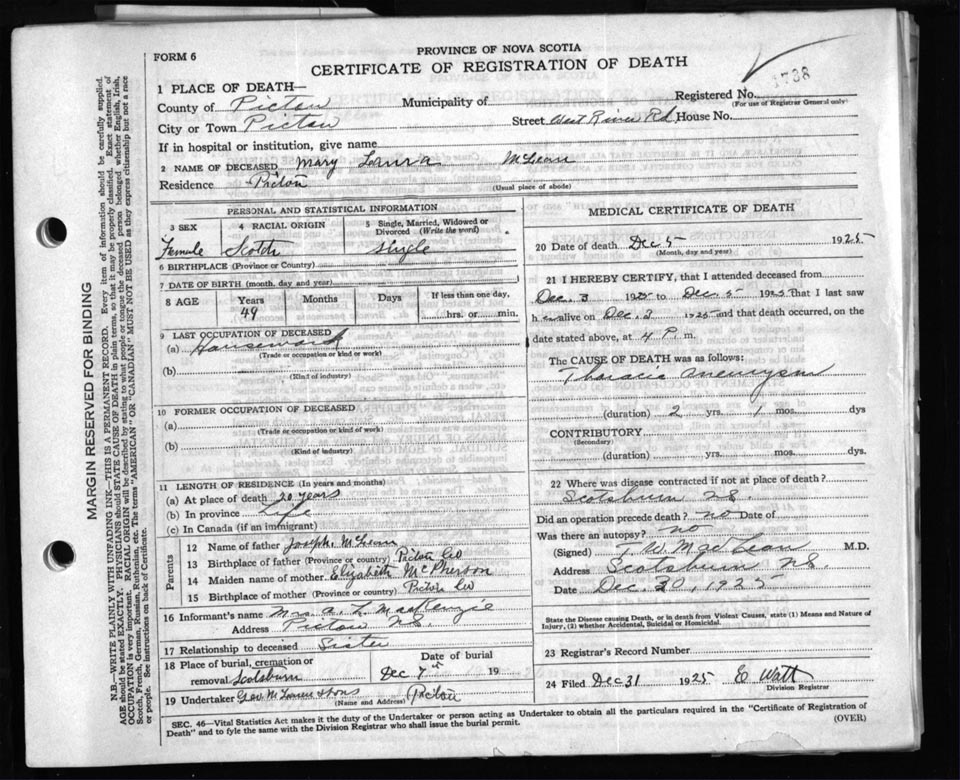 PROVINCE OF NOVA SCOTIA
FORM 6
CERTIFICATE OF REGISTRATION OF DEATH
1738
1 PLACE OF DEATH—
Registered No.
(For use of Registrar General only)
County of Pictou Municipality of
City or Town Pictou Street West River Rd, House No.
If in hospital or institution, give name
2 NAME OF DECEASED Mary Laura McLean
Residence Pictou (Usual place of abode)
PERSONAL AND STATISTICAL INFORMATION
3 SEX 4 RACIAL ORIGIN 5 Single, Married, Widowed or Divorced (Write the word)
Female Scotch Single
6 BIRTHPLACE (Province or Country)
7 DATE OF BIRTH (month, day and year)
8 AGE Years Months Days If less than one day,
49 hrs. or min.
9 LAST OCCUPATION OF DECEASED
(a) Housework
(Trade or occupation or kind or work)
(b)
(Kind of industry)
10 FORMER OCCUPATION OF DECEASED
(a)
(Trade or occupation or kind of work)
(b)
(Kind of industry)
11 LENGTH OF RESIDENCE (In years and months)
(a) At place of death 20 years
(b) In province Life
(c) In Canada (if an immigrant)
Parents
12 Name of father Joseph. McLean
13 Birthplace of father (Province or country) Pictou Co
14 Maiden name of mother Elizabeth McPherson
15 Birthplace of mother (Province or country) Pictou Co
16 Informant's name Mrs A. L. MacKenzie
Address Pictou N.S.
17 Relationship to deceased Sister
18 Place of burial, cremation or removal Scotsburn
Date of burial
Dec 7th 19
19 Undertaker Geo McLaren & Sons Pictou
(Name and Address)
MEDICAL CERTIFICATE OF DEATH
20 Date of death Dec 5 1925
(Month, day and year)
21 I HEREBY CERTIFY, that I attended deceased from
Dec. 3 1925 to Dec. 5 1925 that I last saw
h er alive on Dec. 3 1925 and that death occurred, on the
date stated above, at 4 P. m.
The CAUSE OF DEATH was as follows:
Thoracic aneurysm
(duration) 2 yrs. 1 mos. dys
CONTRIBUTORY
(Secondary)
(duration) yrs. mos. dys.
22 Where was disease contracted if not at place of death?
Scotsburn N.S.
Did an operation precede death? no Date of
Was there an autopsy? no
(Signed) J W MacLean M.D.
Address Scotsburn NS
Date Dec 30, 1925
State the Disease causing Death, or in death from Violent Causes, state (1) Means and Nature of
Injury, (2) whether Accidental, Suicidal or Homicidal.
23 Registrar's Record Number
24 Filed Dec 31 1925 E Watt
Division Registrar
SEC. 46—Vital Statistics Act makes it the duty of the Undertaker or person acting as Undertaker to obtain all the particulars required in the "Certificate of Registration of
Death" and to fyle the same with the Division Registrar who shall issue the burial permit.
(OVER)
MARGIN RESERVED FOR BINDING
N.B.—WRITE PLAINLY WITH UNFADING INK—THIS IS A PERMANENT RECORD. Every item of information should be carefully supplied.
AGE should be stated EXACTLY. PHYSICIANS should STATE CAUSE OF DEATH in plain terms, so that it may be properly classified. Exact statement of
OCCUPATION is very important. RACIAL ORIGIN will be described by stating to what people or tongue the deceased person belonged whether English, Irish,
Scotch, French, German, Russian, Ruthenian, etc. The terms "AMERICAN" OR "CANADIAN" MUST NOT BE USED as they express citizenship but not a race
or people. See instructions on back of Certificate.